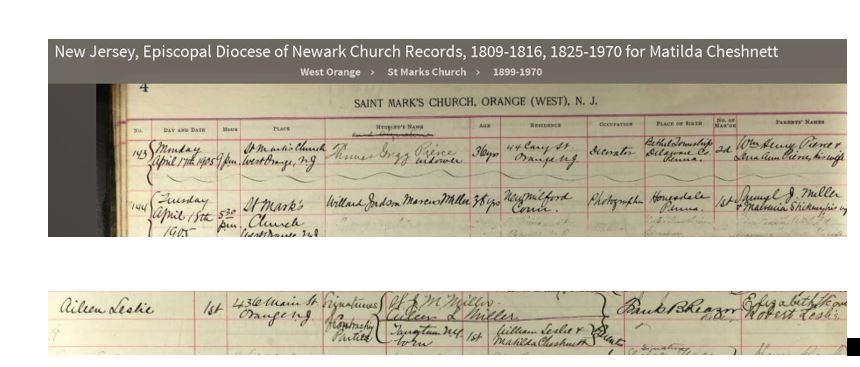 New Jersey, Episcopal Diocese of Newark Church Records, 1809-1816, 1825-1970 for Matilda Cheshnett
West Orange > St Marks Church > 1899-1970
4
SAINT MARK'S CHURCH, ORANGE (WEST), N. J.
No. DAY AND DATE HOUR PLACE HUSBAND'S NAME AGE RESIDENCE OCCUPATION PLACE OF BIRTH NO. OF MAR'GE PARENTS' NAMES
143 Monday April 17th 1905 9 pm. St Mark's Church West Orange, NJ Pierce widower 36 yrs 44 Cary St. Orange NJ Decorator Bethel Township Delaware Co. Penna. 2d Wm Henry Pierce & his wife
144 Tuesday April 18th 1905 5 30 pm. St Mark's Church West Orange NJ Willard Judson Marcus Miller 38 yrs New Milford Conn. Photographer Honesdale Penna. 1st Samuel J. Miller
Aileen Leslie 1st 436 Main St Orange NJ Signatures Contracting Parties M Miller Aileen L Miller Frank B Reazor Elizabeth Robert Leslie
born 1st William Leslie & Matilda Cheshnett Parents